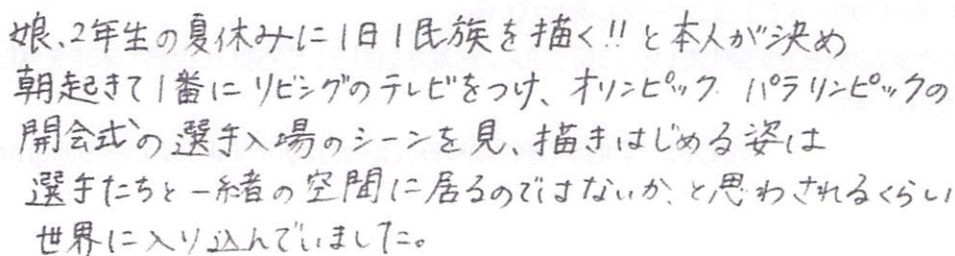 娘、2年生の夏休みに1日1民族を描く!!と本人が決め
朝起きて1番にリビングのテレビをつけ、オリンピック パラリンピックの
開会式の選手入場のシーンを見、描きはじめる姿は
選手たちと一緒の空間に居るのではないか、と思わされるくらい
世界に入り込んでいました。